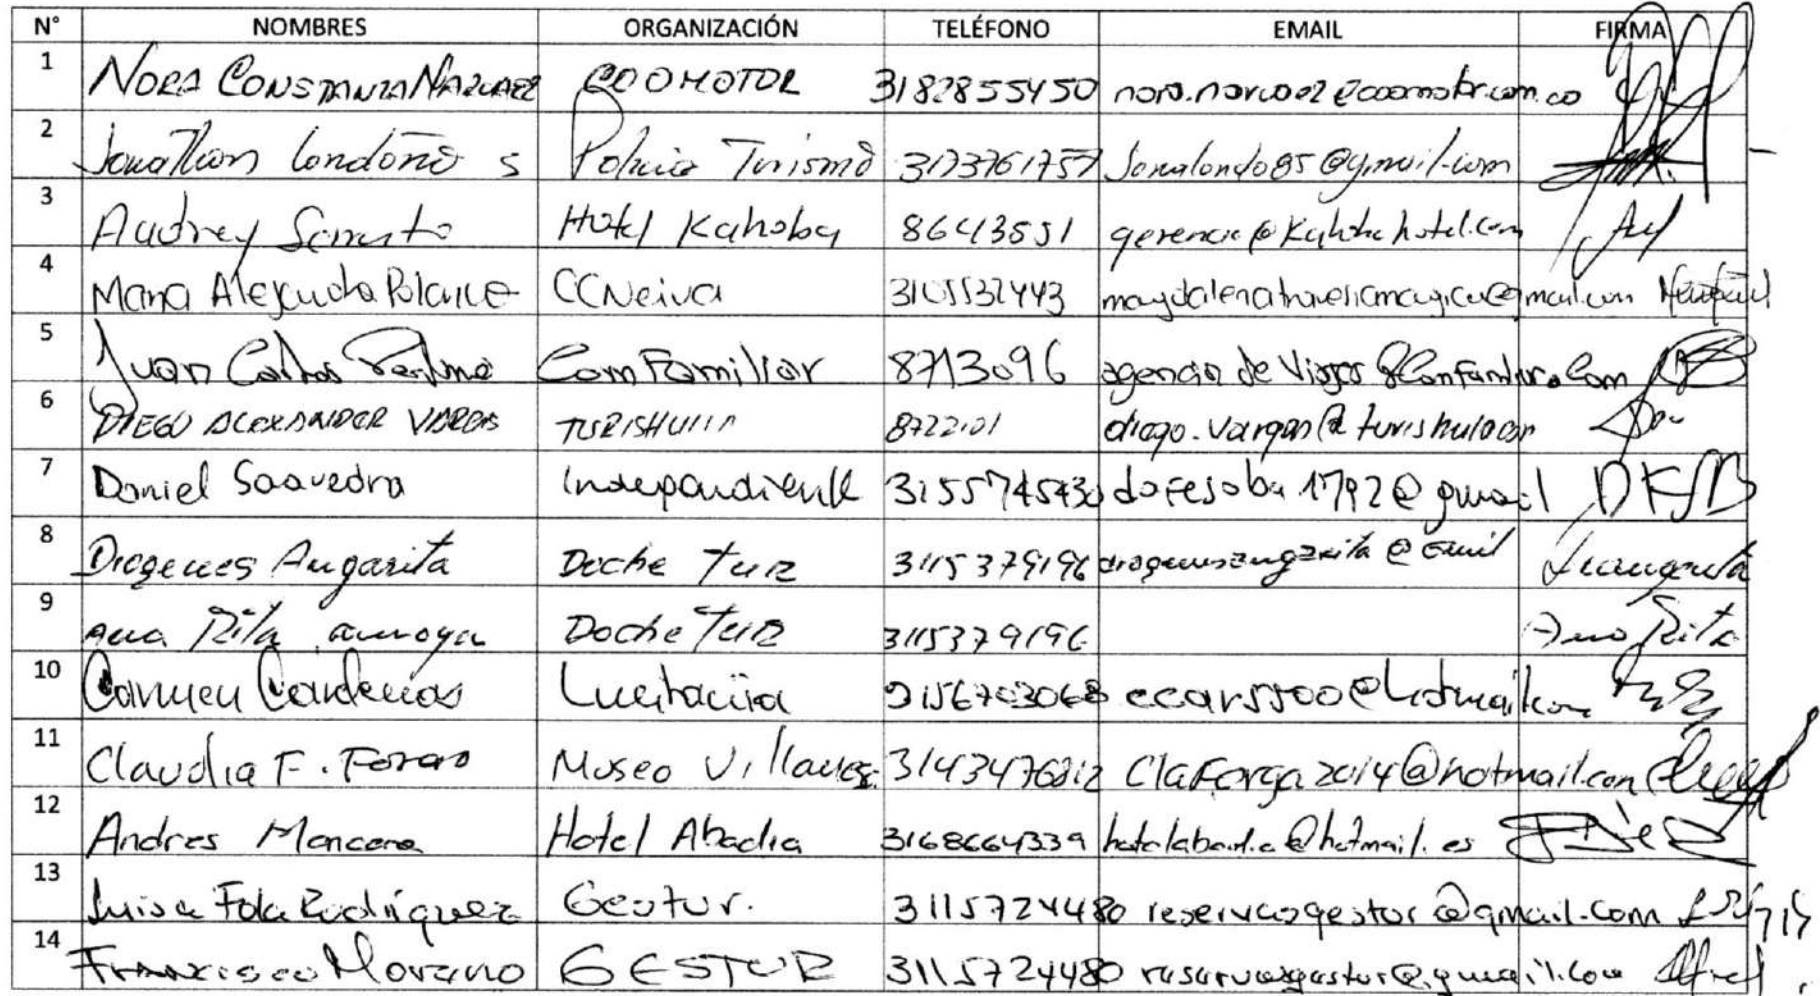 N° NOMBRES ORGANIZACIÓN TELÉFONO EMAIL FIRMA
1 NORA CONSTANZA NARVAEZ COOMOTOR 3182855450 nora.narvaez@coomotor.com.co
2 Jonathan Londoño S Policia Turismo 3173761757 Jonalondo85@gmail.com
3 Audrey Hotel Kahoba 8643551
4 Maria Alejandra Polanco CCNeiva 3105532443
5 Juan Carlos Perdomo ComFamiliar 8713096 agencia de Viajes
6 DIEGO ALEXANDER VARGAS TURISHUILA 8722101
7 Daniel Saavedra Independiente 3155745430 dafesaba1792@gmail DFSB
8 Diogenes Angarita Doche Tur 3115379196 diogenesangarita@Gmil
9 Ana Rita Doche Tur 3115379196 Ana Rita
10 Carmen Cardenas 3156703068 ccar5500@hotmail.com
11 Claudia F. Museo Villavieja 3143476812 Claforga2014@hotmail.com
12 Andres Mancera Hotel Abadia 3168664339 hotelabadia@hotmail.es
13 Luisa Fda Rodriguez Gestur. 3115724480 reservasgestur@gmail.com
14 Francisco Moreno GESTUR 3115724480 reservasgestur@gmail.com